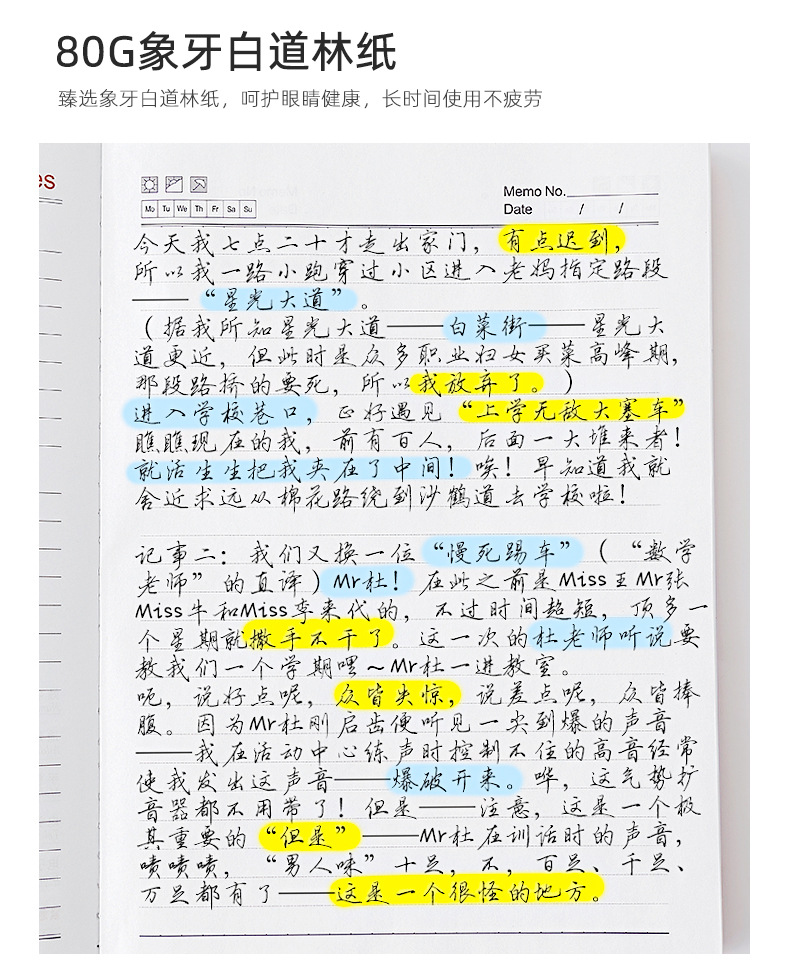 80G象牙白道林纸
臻选象牙白道林纸，呵护眼睛健康，长时间使用不疲劳
es
Memo No.
Mo Tu We Th Fr Sa Su
Date / /
今天我七点二十才走出家门，有点迟到，
所以我一路小跑穿过小区进入老妈指定路段
——“星光大道”。
（据我所知星光大道——白菜街——星光大
道更近，但此时是众多职业妇女买菜高峰期，
那段路挤的要死，所以我放弃了。）
进入学校巷口，正好遇见“上学无敌大塞车”
瞧瞧现在的我，前有百人，后面一大堆来者！
就活生生把我夹在了中间！唉！早知道我就
舍近求远从棉花路绕到沙鹤道去学校啦！
记事二：我们又换一位“慢死踢车”（“数学
老师”的直译）Mr杜！在此之前是Miss王Mr张
Miss牛和Miss李来代的，不过时间超短，顶多一
个星期就撒手不干了。这一次的杜老师听说要
教我们一个学期嘿~Mr杜一进教室。
呃，说好点呢，众皆失惊，说差点呢，众皆捧
腹。因为Mr杜刚启齿便听见一尖到爆的声音
——我在活动中心练声时控制不住的高音经常
使我发出这声音——爆破开来。哗，这气势扩
音器都不用带了！但是——注意，这是一个极
其重要的“但是”——Mr杜在训话时的声音，
啧啧啧，“男人味”十足，不，百足、千足、
万足都有了——这是一个很怪的地方。